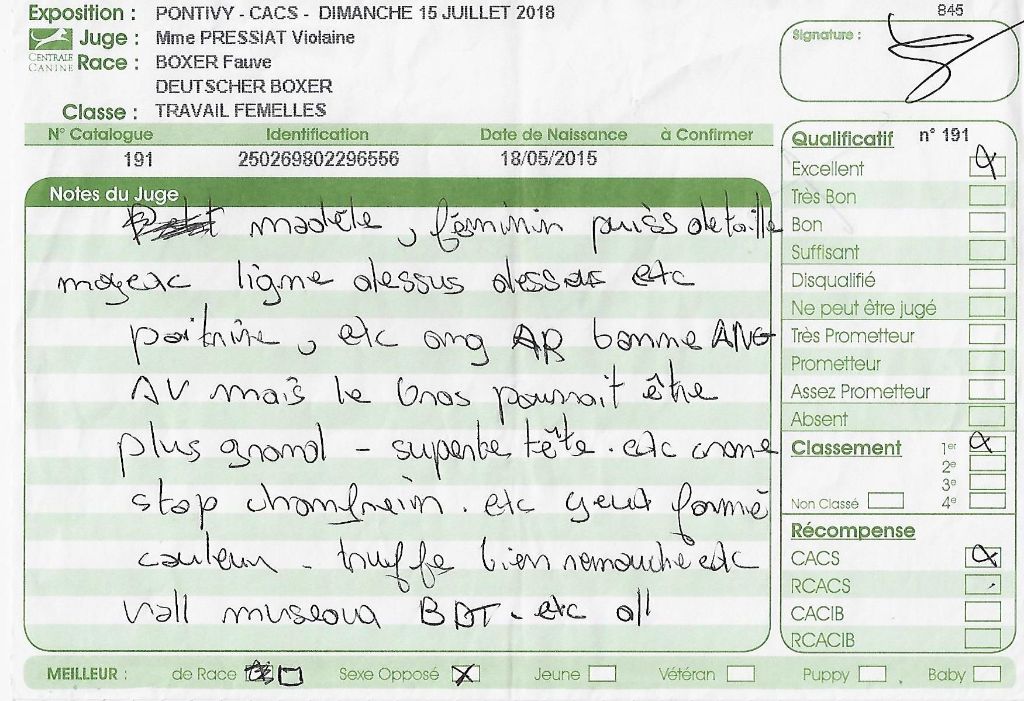 Exposition : PONTIVY - CACS - DIMANCHE 15 JUILLET 2018
845
CENTRALE CANINE
Juge : Mme PRESSIAT Violaine
Signature :
Race : BOXER Fauve
DEUTSCHER BOXER
Classe : TRAVAIL FEMELLES
N° Catalogue Identification Date de Naissance à Confirmer
191 250269802296556 18/05/2015
Qualificatif n° 191
Excellent
Très Bon
Bon
Suffisant
Disqualifié
Ne peut être jugé
Très Prometteur
Prometteur
Assez Prometteur
Absent
Classement 1er
2e
3e
Non Classé 4e
Récompense
CACS
RCACS
CACIB
RCACIB
Notes du Juge
modèle, féminin puiss de taille
ligne dessus dessous etc
poitrine, etc ang AR bonne ANG
AV mais le bras pourrait être
plus grand - superbe tête. etc crane
stop chamfrein. etc yeux forme
couleur - truffe bien remouché etc
museau BDT - etc all
MEILLEUR : de Race Sexe Opposé X Jeune Vétéran Puppy Baby